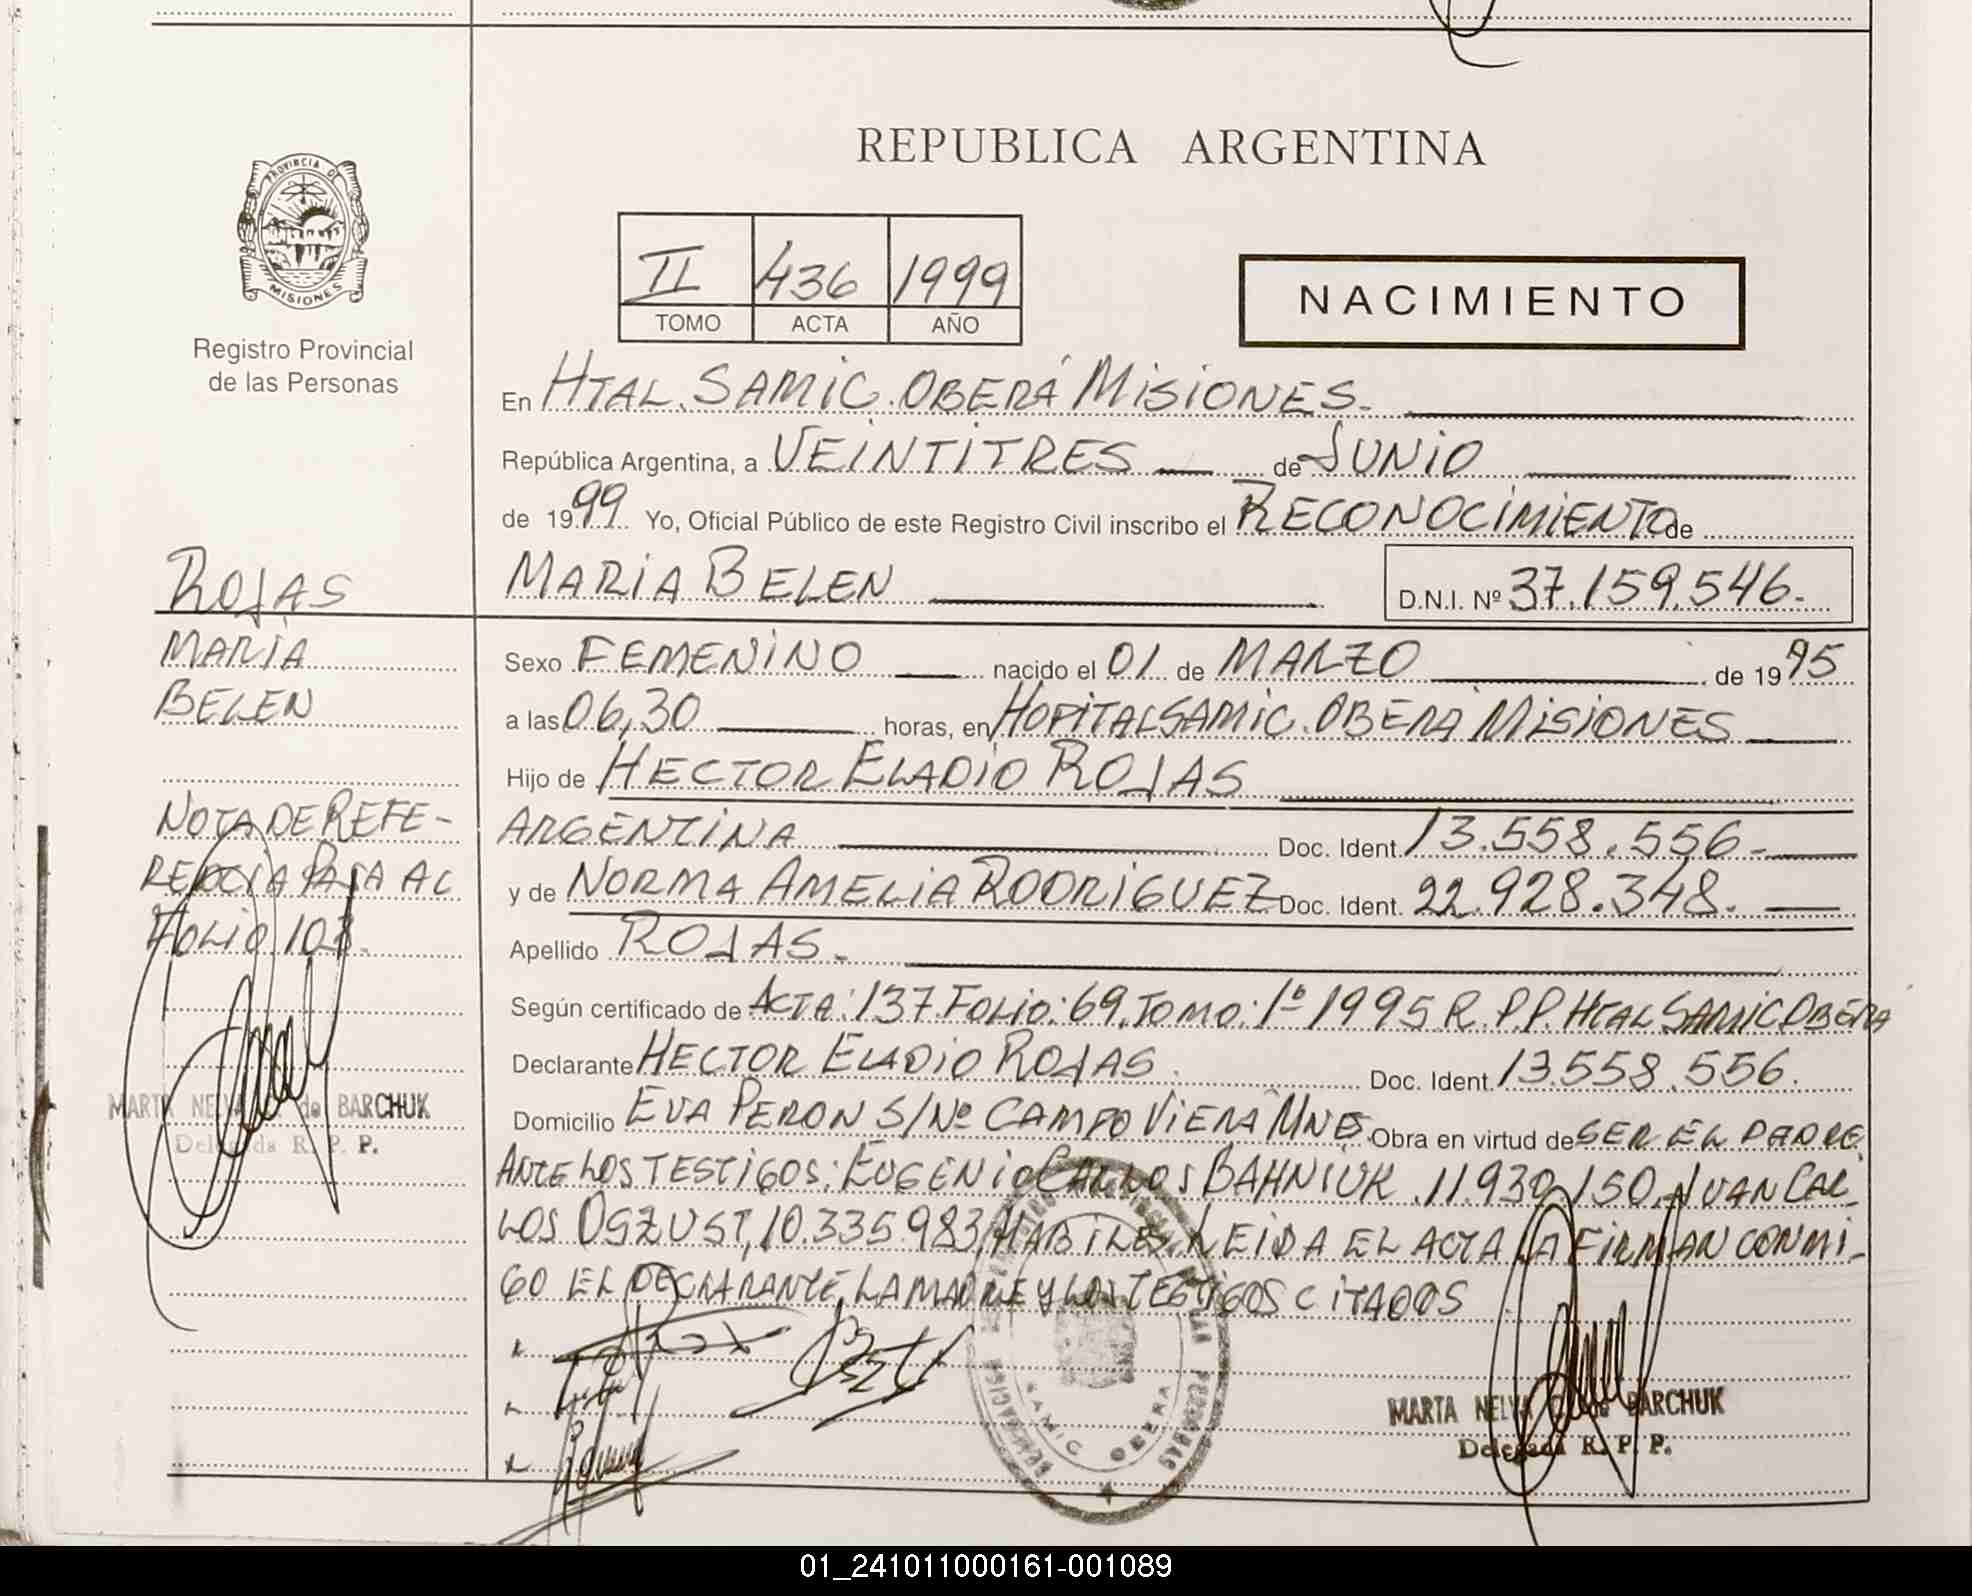 REPUBLICA ARGENTINA
PROVINCIA DE
MISIONES
Registro Provincial
de las Personas
II 436 1999
TOMO ACTA AÑO
NACIMIENTO
En HTAL. SAMIC. OBERÁ MISIONES.
República Argentina, a VEINTITRES de JUNIO
de 1999 Yo, Oficial Público de este Registro Civil inscribo el RECONOCIMIENTO de
MARIA BELEN D.N.I. Nº 37.159.546.
ROJAS
MARIA
BELEN
NOTA DE REFE-
RENCIA PASA AL
FOLIO
MARTA NELVA de BARCHUK
Delegada R. P. P.
Sexo FEMENINO nacido el 01 de MARZO de 1995
a las 06,30 horas, en HOPITAL SAMIC. OBERA MISIONES
Hijo de HECTOR ELADIO ROJAS
ARGENTINA Doc. Ident. 13.558.556.
y de NORMA AMELIA RODRIGUEZ Doc. Ident. 22.928.348.
Apellido ROJAS.
Según certificado de ACTA: 137 FOLIO: 69. TOMO: 1º 1995 R.P.P. HTAL SAMIC OBERA
Declarante HECTOR ELADIO ROJAS Doc. Ident. 13.558.556.
Domicilio EVA PERON S/Nº CAMPO VIERA MNES. Obra en virtud de SER EL PADRE.
ANTE LOS TESTIGOS: EUGENIO CARLOS BAHNIUK. 11.930.150. JUAN CAR-
LOS OSZUST, 10.335.983, HABILES. LEIDA EL ACTA LA FIRMAN CONMI-
GO EL DECLARANTE, LA MADRE Y LOS TESTIGOS CITADOS
SAMIC OBERA
MARTA NELVA de BARCHUK
Delegada R. P. P.
01_241011000161-001089